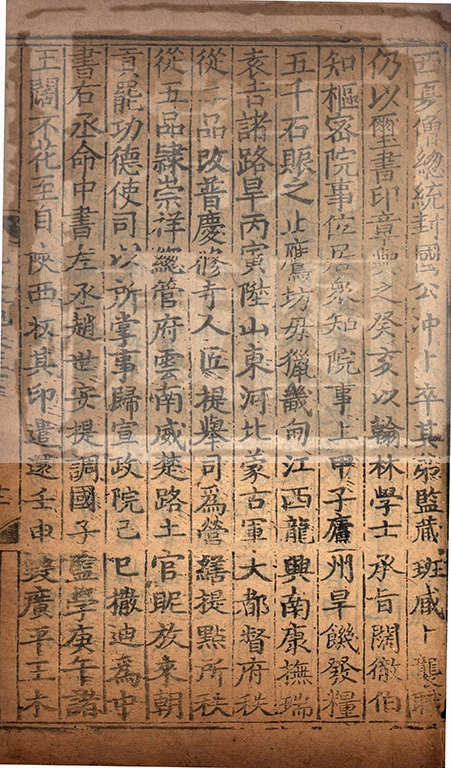 西夏僧總統封國公冲卜卒其弟監藏班臧卜襲職
仍以璽書印章與之癸亥以翰林學士承旨闊徹伯
知樞密院事位居衆知院事上甲子廣州旱饑發糧
五千石賑之止鷹坊毋獵畿甸江西龍興南康撫瑞
袁吉諸路旱丙寅陞山東河北蒙古軍大都督府秩
從二品改普慶修寺人匠提舉司爲營繕提點所秩
從五品隸崇祥總管府雲南威楚路土官昵放來朝
貢罷功德使司以所掌事歸宣政院己巳撒迪爲中
書右丞命中書左丞趙世安提調國子監學庚午諸
王闊不花至自陝西收其印遣還壬申毀廣平王木